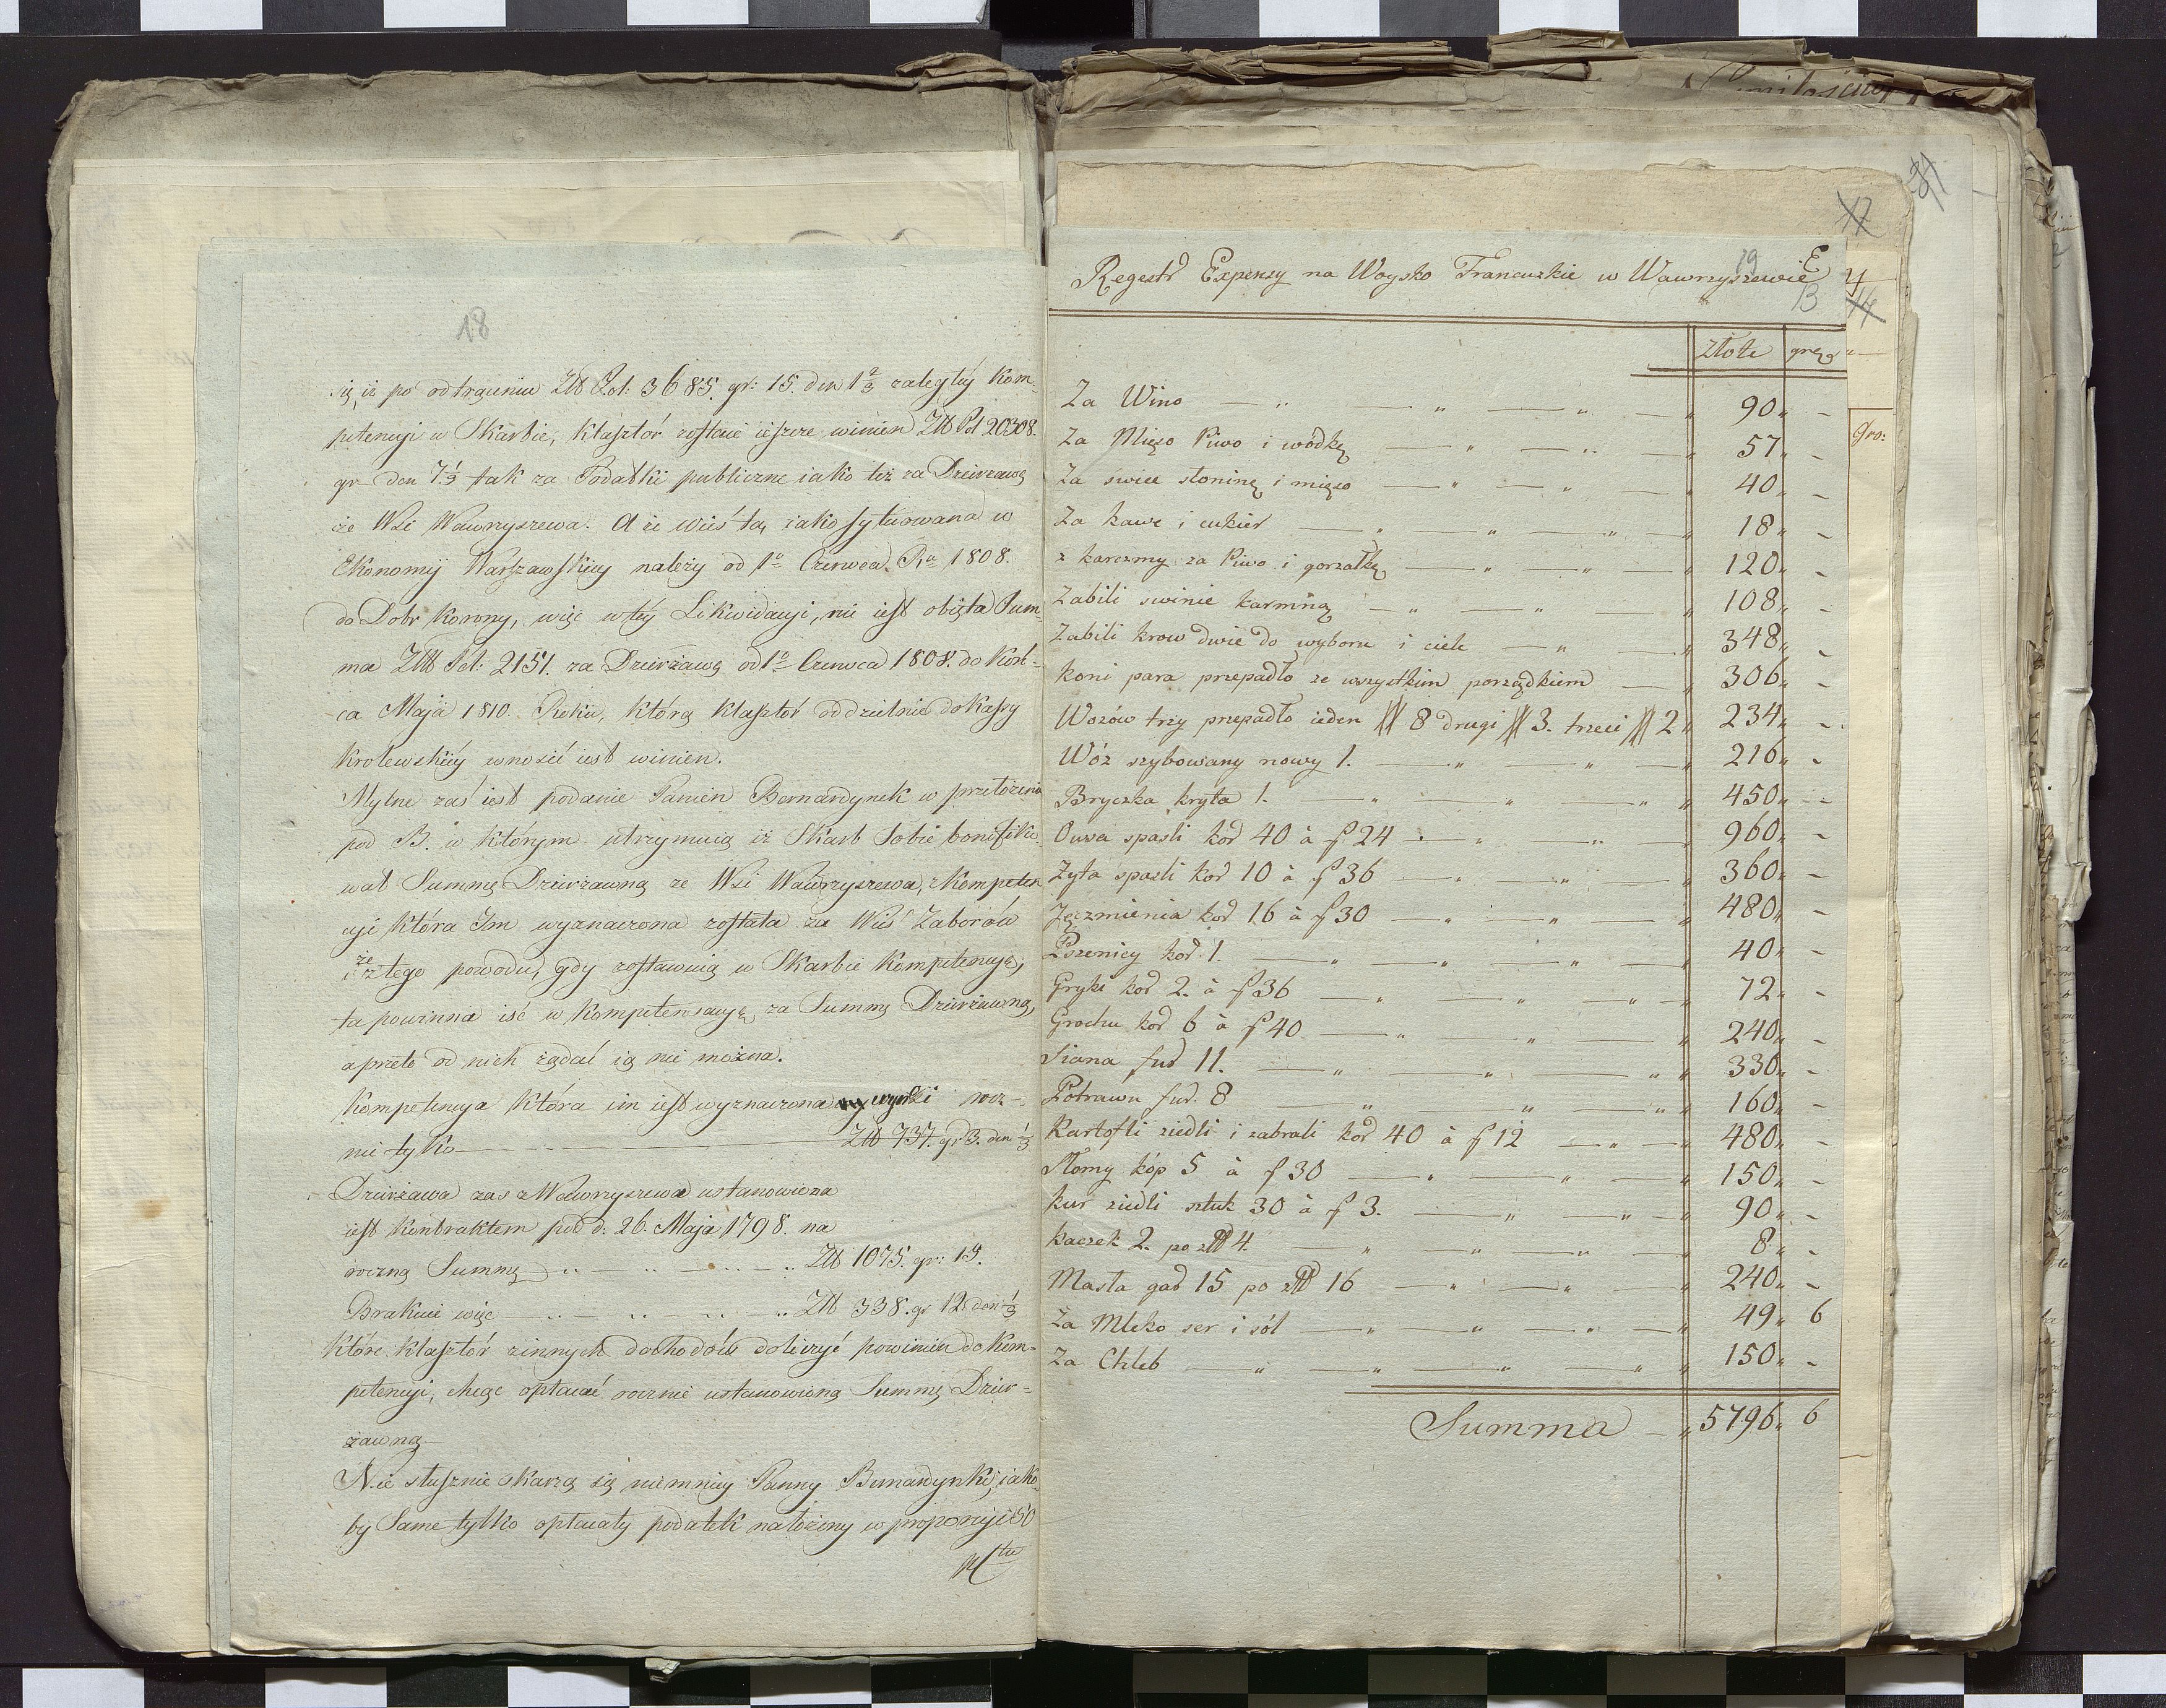 18
ię, iż po odtrąceniu Złł Pol: 3685. gr: 15. den 1 2/3 zaległéy Kom-
petencyi w Skarbie, Klasztór zostaie ieszcze winien Złł Pol 20308.
gr den 7 1/3 tak za Podatki publiczne iako też za Dzierzawę
ze Wsi Wawrzyszewa. A że wieś ta, iako sytuowana w
Ekonomij Warszawskiey należy od 1o Czerwca Ru 1808.
do Dobr Korony, więc w téy Likwidacyi, nie iest obięta Sum-
ma Złł Pol: 2151. za Dzierżawę od 1o Czerwca 1808. do Koń-
ca Maja 1810. Roku, którą Klasztór oddzielnie do Kassy
Krolewskiéy wnosić iest winien.
Mylne zaś iest podanie Panien Bernardynek w przełożeniu
pod B. w którym utrzymuią iż Skarb Sobie bonifiko-
wał Summę Dzierżawną ze Wsi Wawrzyszewa, z Kompeten
cyi która Im wyznaczona została za Wieś Zaborów
i że z tego powodu, gdy zostawuią w Skarbie Kompetencyę,
ta powinna iść w Kompensacyę, za Summę Dzierżawną,
a przeto od nich żądać ią nie można.
Kompetencya która im iest wyznaczona wynosi rocz-
nie tylko Złł 737. gr 3. den 1/3
Dzierżawa zas z Wawrzyszewa ustanowiona
iest Kontraktem pod d: 26. Maja 1798. na
roczną Summę Złł 1075. gr: 15.
Brakuie więc Złł 338. gr 12 den 1/3
które Klasztór z innych dochodów doliczyć powinien do Kom-
petencyi, chcąc opłacać rocznie ustanowioną Summę Dzier-
żawną
Nie słusznie skarżą się niemniey Panny Bernardynki, iako-
by Same tylko opłacały podatek nałożony w proporcyi 50
Ctu
17
19
E
Regestr Expensy na Woysko Francuzkie w Wawrzyszewie
13
4
14
złote grosz
Gro:
Za Wino 90 -
Za Mięso Piwo i wódkę 57 -
Za swice słoninę i mięso 40 -
Za kawe i cukier 18 -
z karczmy za Piwo i gorzałkę 120 -
Zabili swinie karmną 108 -
Zabili krow dwie do wyboru i ciele 348 -
Koni para przepadło ze wszystkim porządkiem 306 -
Wozów trzy przepadło ieden # 8 drugi # 3. trzeci # 2 234 -
Wóz szybowany nowy 1. 216 -
Bryczka kryta 1. 450 -
Owsa spasli kor 40 à f 24 960 -
Zyta spasli kor 10 à f 36 360 -
Jęczmienia kor 16 à f 30 480 -
Pszenicy kor. 1. 40 -
Gryki kor 2. à f 36 72 -
Grochu kor 6 à f 40 240 -
Siana fur 11. 330 -
Potrawu fur. 8 160 -
Kartofli ziedli i zabrali kor 40 à f 12 480 -
Słomy kóp 5 à f 30 150 -
Kur ziedli sztuk 30 à f 3. 90 -
Kaczek 2. po złł 4. 8 -
Masła gar 15 po złł 16 240 -
Za Mleko ser i sól 49 6
Za Chleb 150 -
Summa 5796 6